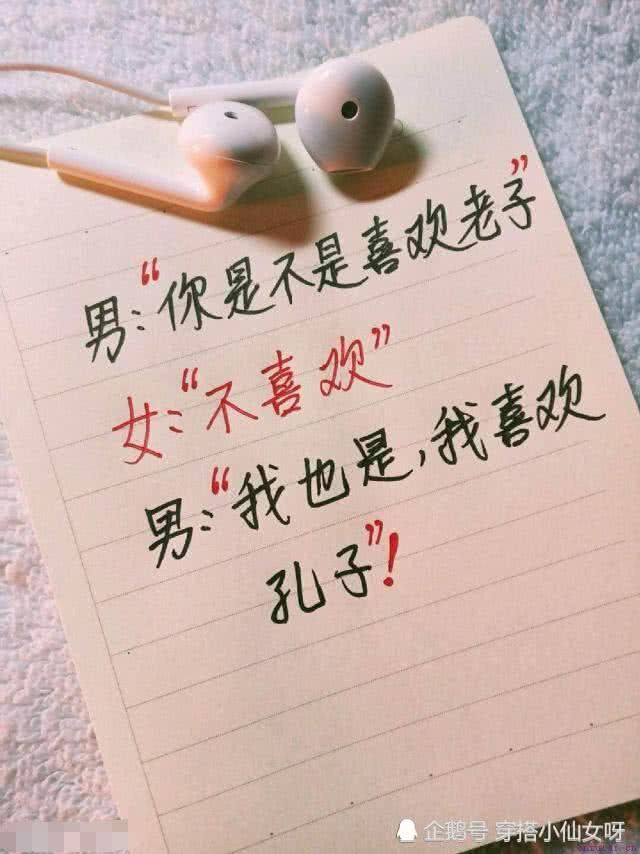 男:“你是不是喜欢老子”
女:“不喜欢”
男:“我也是,我喜欢
孔子”!
企鹅号 穿搭小仙女呀